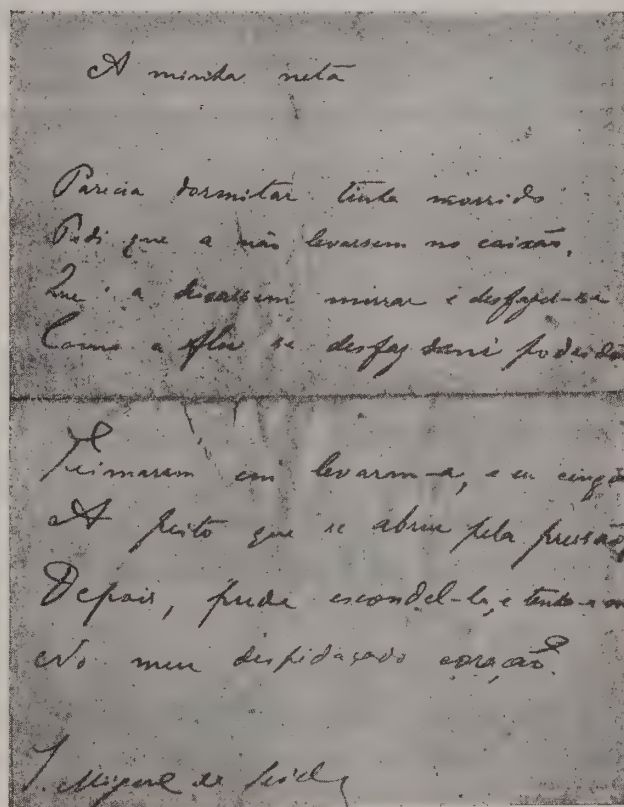 A minha neta
Parecia dormitar tinha morrido
Pedi que a não levassem no caixão,
Que a deixassem mirrar e desfazer-se
Como a flor se desfaz
Teimaram em levarem-a, e eu
A peito que se abriu pela pressão
Depois, pude escondel-la, e tenho-a
No meu despedaçado coração.
J. Miguel de